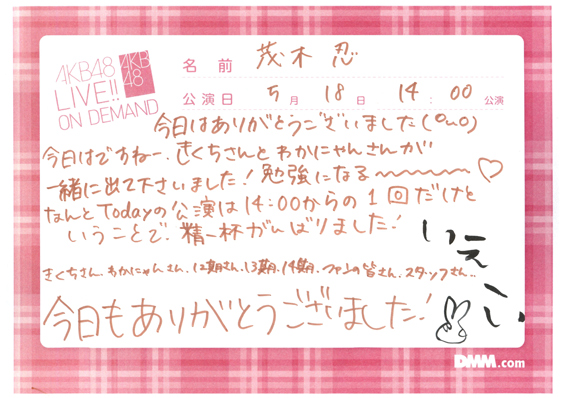 AKB48
LIVE!!
ON DEMAND
AKB
48
名前 茂木 忍
公演日 5月 18日 14:00 公演
今日はありがとうございました(OuO)
今日はですねー、きくちさんとわかにゃんさんが
一緒に出て下さいました!勉強になる〜〜〜♡
なんとTodayの公演は14:00からの1回だけと
いうことで、精一杯がんばりました!
いえーい
きくちさん、わかにゃんさん、12期さん、13期、14期、ファンの皆さん、スタッフさん...
今日もありがとうございました!
DMM.com